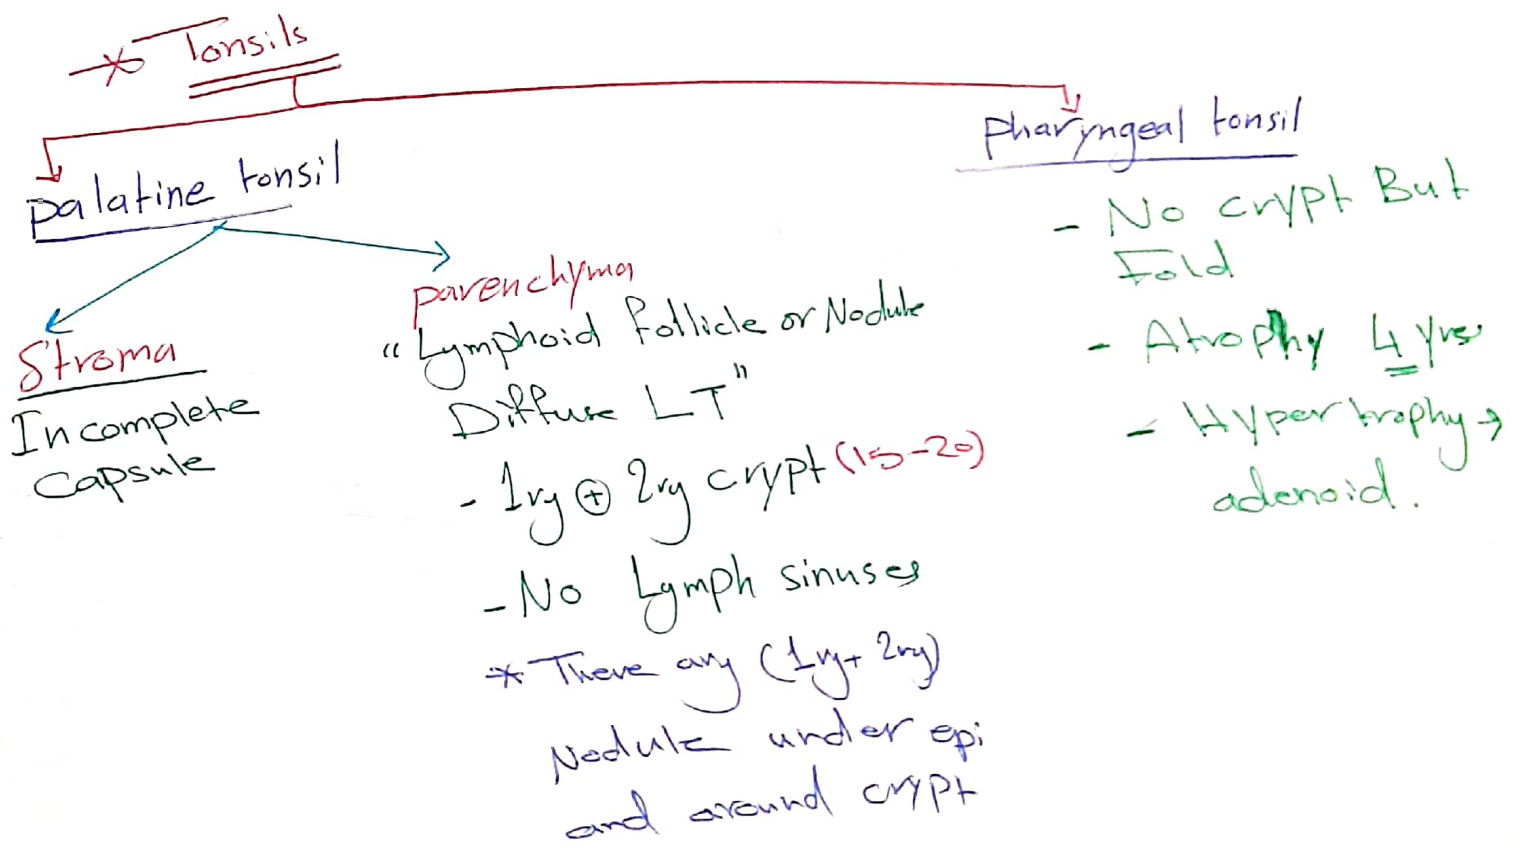 * Tonsils
Palatine tonsil
Stroma
Incomplete
Capsule
parenchyma
"Lymphoid follicle or Nodule
Diffuse LT"
- 1ry ⊕ 2ry crypt (15-20)
- No Lymph sinuses
* There any (1ry + 2ry)
Nodule under epi
and around crypt
Pharyngeal tonsil
- No crypt But
Fold
- Atrophy 4 yrs
- Hypertrophy →
adenoid.